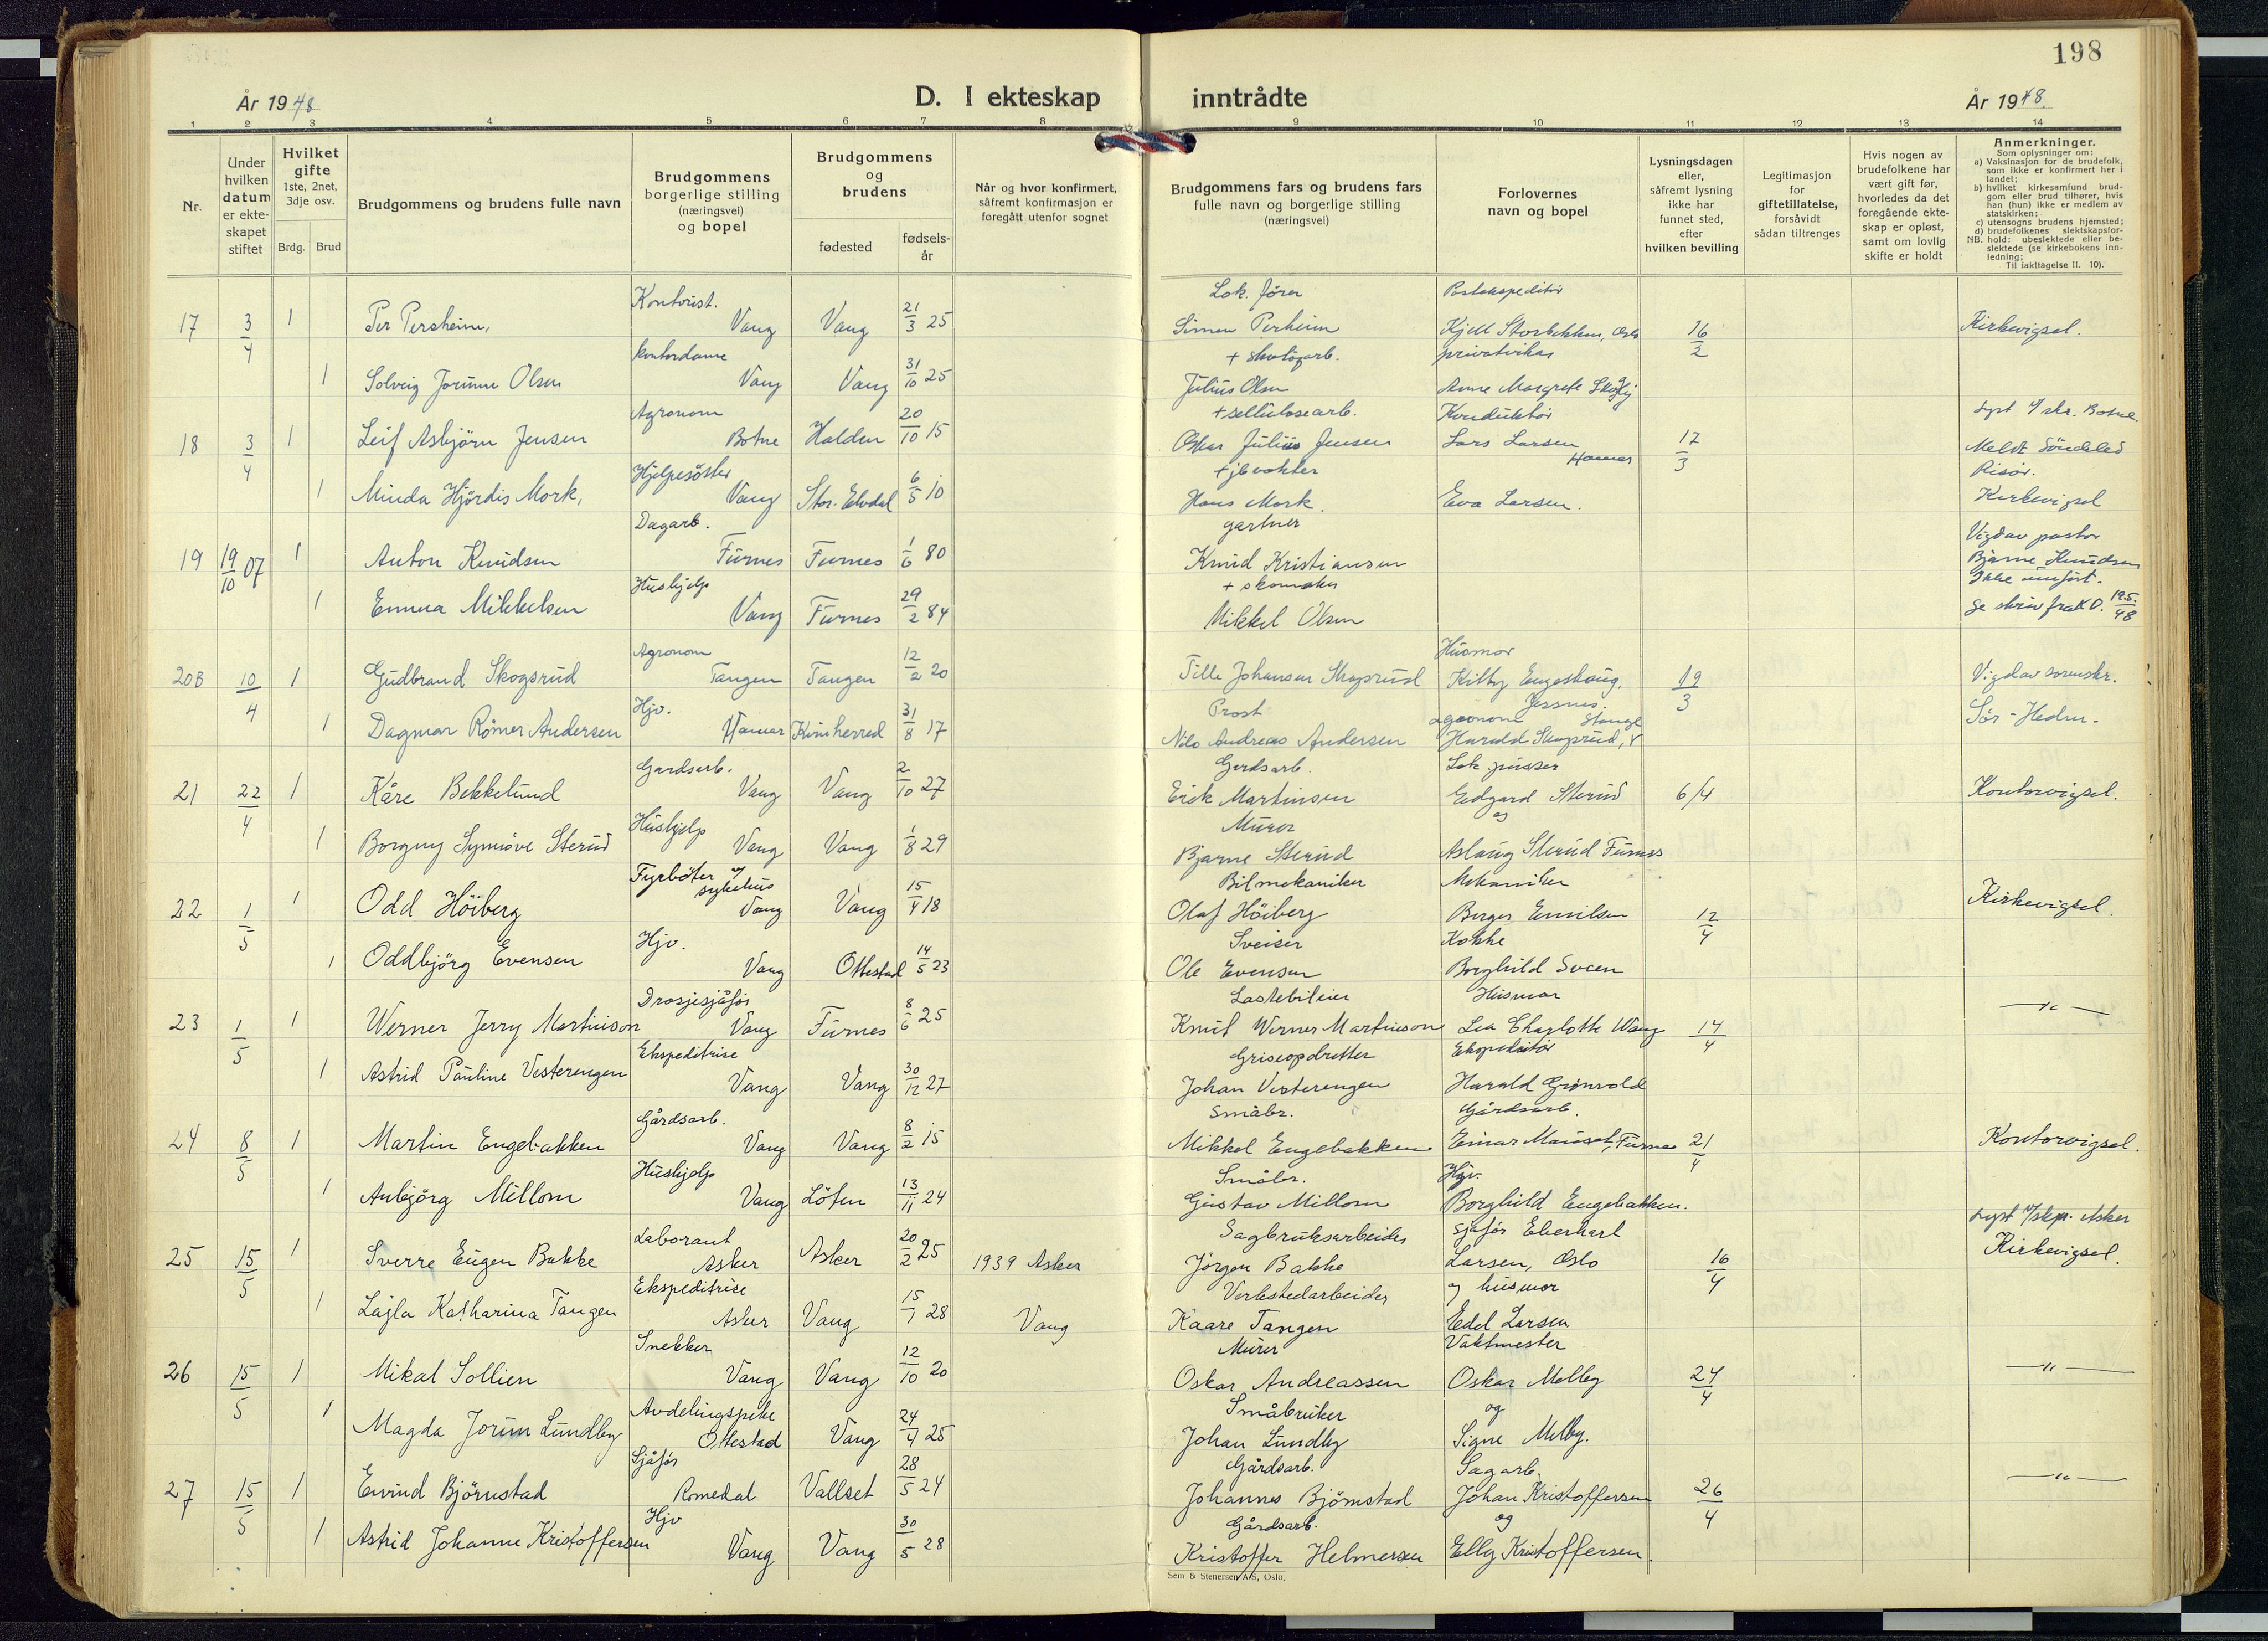 198
År 1948
D. I ekteskap inntrådte
År 1948.
1 2 3 4 5 6 7 8 9 10 11 12 13 14
Nr.
Under hvilken datum er ekteskapet stiftet
Hvilket gifte 1ste, 2net, 3dje osv.
Brdg. Brud
Brudgommens og brudens fulle navn
Brudgommens borgerlige stilling (næringsvei) og bopel
Brudgommens og brudens
fødested
fødsels-år
Når og hvor konfirmert, såfremt konfirmasjon er foregått utenfor sognet
Brudgommens fars og brudens fars fulle navn og borgerlige stilling (næringsvei)
Forlovernes navn og bopel
Lysningsdagen eller, såfremt lysning ikke har funnet sted, efter hvilken bevilling
Legitimasjon for giftetillatelse, forsåvidt sådan tiltrenges
Hvis nogen av brudefolkene har vært gift før, hvorledes da det foregående ekteskap er opløst, samt om lovlig skifte er holdt
Anmerkninger.
Som oplysninger om:
a) Vaksinasjon for de brudefolk, som ikke er konfirmert her i landet;
b) hvilket kirkesamfund brudgom eller brud tilhører, hvis han (hun) ikke er medlem av statskirken;
c) utensogns brudens hjemsted;
d) brudefolkenes slektskapsforhold: ubeslektede eller beslektede (se kirkebokens innledning;
NB.
Til iakttagelse II. 10).
Kontorist. Lok. fører Postekspeditør
17 3/4 1 Per Persheim, Vang Vang 21/3 25 Simen Perheim Kjell Storbekken, Oslo 16/2 Kirkevigsel.
kontordame + skotøyarb. privatvikar
1 Solveig Jorunn Olsen Vang Vang 31/10 25 Julius Olsen Anne Margrete Skogly
Agronom + sellulosearb. Konduktør Lyst Botne.
18 3/4 1 Leif Asbjörn Jensen Botne Halden 20/10 15 Oskar Julius Jensen Lars Larsen Hamar 17/3 Meldt Söndeled
Hjelpesöster + jb vokter Risör.
1 Minda Hjördis Mork, Vang Stor-Elvdal 6/5 10 Hans Mork. Eva Larsen. Kirkevigsel
Dagarb. gartner Vigd av pastor
19 19/10 07 1 Anton Knudsen Furnes Furnes 1/6 80 Knud Kristiansen Bjarne Knudsen
Hushjelp + skomaker Ikke innført.
1 Emma Mikkelsen Vang Furnes 29/2 84 Mikkel Olsen Se skriv fra K.D. 19.5./48
Agronom Husmor
20B 10/4 1 Gudbrand Skogsrud Tangen Tangen 12/2 20 Tille Johansen Skogsrud Kilby Engeshaug, 19/3 Vigd av sorenskr.
Hjv. Prost Jessnes. agronom Stange Sör-Hedm.
1 Dagmar Römer Andersen Hamar Kvinherred 31/8 17 Nils Andreas Andersen Harald Skogsrud,
Gardsarb. Gardsarb. Lok. pusser
21 22/4 1 Kåre Bekkelund Vang Vang 2/10 27 Erik Martinsen Edgard Sterud 6/4 Kontorvigsel.
Hushjelp Murer og
1 Borgny Synnöve Sterud Vang Vang 1/8 29 Bjarne Sterud Aslaug Sterud Furnes
Fyrböter v/ sykehus Bilmekaniker Mekaniker
22 1/5 1 Odd Höiberg Vang Vang 15/4 18 Olaf Höiberg Birger Emilsen 12/4 Kirkevigsel.
Hjv. Sveiser Kokke
1 Oddbjörg Evensen Vang Ottestad 14/5 23 Ole Evensen Borghild Sveen
Drosjesjåför Lastebileier Husmor
23 1/5 1 Werner Jerry Martinson Vang Furnes 8/6 25 Knut Werner Martinson Lea Charlotte Wang 14/4 —"—
Ekspeditrise Griseopdretter Ekspeditör
1 Astrid Pauline Vesterengen Vang Vang 30/12 27 Johan Vesterengen Harald Grönvold
Gårdsarb. Småbr. Gårdsarb.
24 8/5 1 Martin Engebakken Vang Vang 8/2 15 Mikkel Engebakken Einar Mauset, Furnes 21/4 Kontorvigsel.
Hushjelp Småbr. Hjv.
1 Anbjörg Millom Vang Löten 13/11 24 Gustav Millom Borghild Engebakken.
Laborant Sagbruksarbeider Sjåför Eberhart Lyst Asker
25 15/5 1 Sverre Eugen Bakke Asker Asker 20/2 25 1939 Asker Jörgen Bakke Larsen, Oslo 16/4 Kirkevigsel.
Ekspeditrise Verkstedarbeider og husmor
1 Lajla Katharina Tangen Asker Vang 15/1 28 Vang Kaare Tangen Edel Larsen
Snekker Murer Vaktmester
26 15/5 1 Mikal Sollien Vang Vang 12/10 20 Oskar Andreassen Oskar Melby 24/4 —"—
Avdelingspike Småbruker og
1 Magda Jorun Lundby Ottestad Vang 24/4 25 Johan Lundby Signe Melby.
Sjåför Gårdsarb. Sagarb.
27 15/5 1 Eivind Björnstad Romedal Vallset 28/5 24 Johannes Björnstad Johan Kristoffersen 26/4 —"—
Hjv Gårdsarb. og
1 Astrid Johanne Kristoffersen Vang Vang 30/5 28 Kristoffer Helmersen Elly Kristoffersen.
Sem & Stenersen A/S, Oslo.